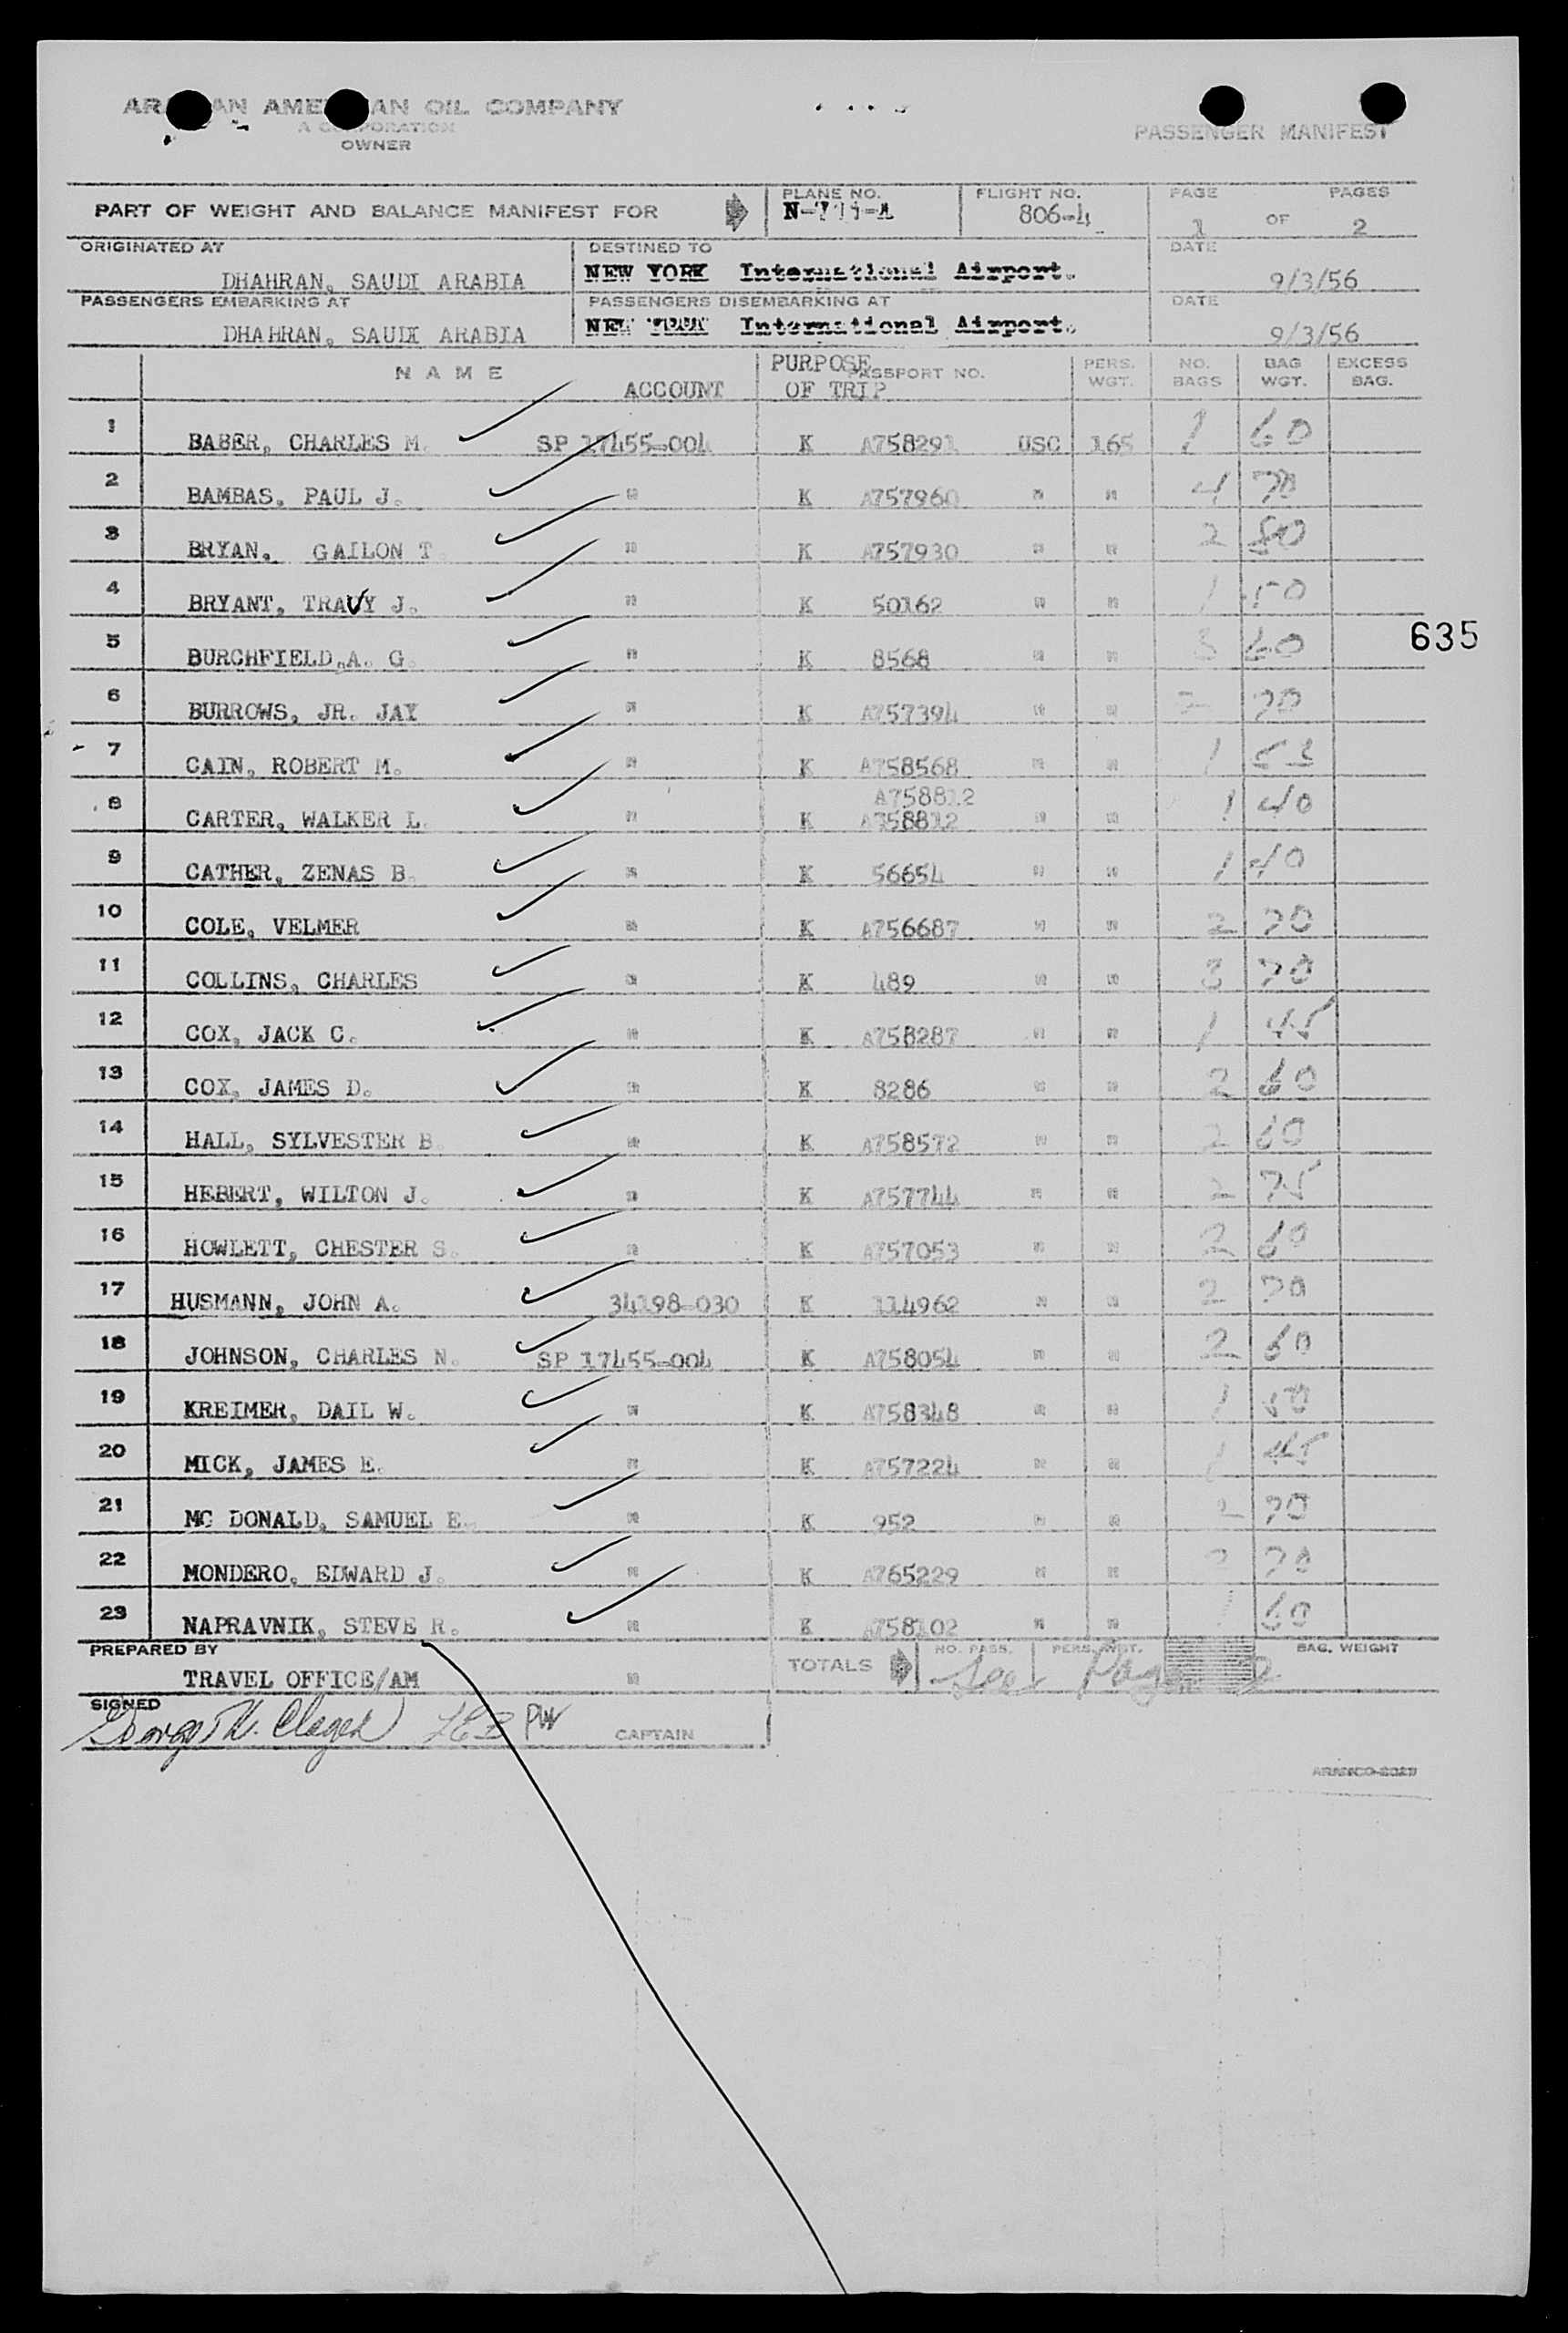 AR AN AME AN OIL COMPANY
A CORPORATION
OWNER
PASSENGER MANIFEST
PART OF WEIGHT AND BALANCE MANIFEST FOR
PLANE NO.
FLIGHT NO. 806-4
PAGE 1 OF PAGES 2
ORIGINATED AT DHAHRAN, SAUDI ARABIA
DESTINED TO NEW YORK International Airport.
DATE 9/3/56
PASSENGERS EMBARKING AT DHAHRAN, SAUDI ARABIA
PASSENGERS DISEMBARKING AT NEW International Airport.
DATE 9/3/56
NAME ACCOUNT PURPOSE OF TRIP PASSPORT NO. PERS. WGT. NO. BAGS BAG WGT. EXCESS BAG.
1 BABER, CHARLES M. SP 17455-004 K A758291 USC 165 1 60
2 BAMBAS, PAUL J. " K A757960 " " 4 70
3 BRYAN, GAILON T. " K A757930 " " 2 80
4 BRYANT, TRAVY J. " K 50162 " " 1 50
5 BURCHFIELD, A. G. " K 8568 " " 3 60
635
6 BURROWS, JR. JAY " K A757394 " " 2 70
7 CAIN, ROBERT M. " K A758568 " " 1 53
A758812
8 CARTER, WALKER L. " K A758812 " " 1 40
9 CATHER, ZENAS B. " K 56654 " " 1 40
10 COLE, VELMER " K A756687 " " 2 70
11 COLLINS, CHARLES " K 489 " " 3 70
12 COX, JACK C. " K A758287 " " 1 45
13 COX, JAMES D. " K 8286 " " 2 60
14 HALL, SYLVESTER B. " K A758572 " " 2 60
15 HEBERT, WILTON J. " K A757744 " " 2 75
16 HOWLETT, CHESTER S. " K A757053 " " 2 60
17 HUSMANN, JOHN A. 34198-030 K 114962 " " 2 70
18 JOHNSON, CHARLES N. SP 17455-004 K A758054 " " 2 60
19 KREIMER, DAIL W. " K A758348 " " 1 50
20 MICK, JAMES E. " K A757224 " " 1 45
21 MC DONALD, SAMUEL E. " K 952 " " 2 70
22 MONDERO, EDWARD J. " K A765229 " " 2 70
23 NAPRAVNIK, STEVE R. " K A758102 " " 1 60
PREPARED BY TRAVEL OFFICE/AM "
TOTALS NO. PASS. PERS. WGT. BAG. WEIGHT
See Page 2
SIGNED George PW CAPTAIN